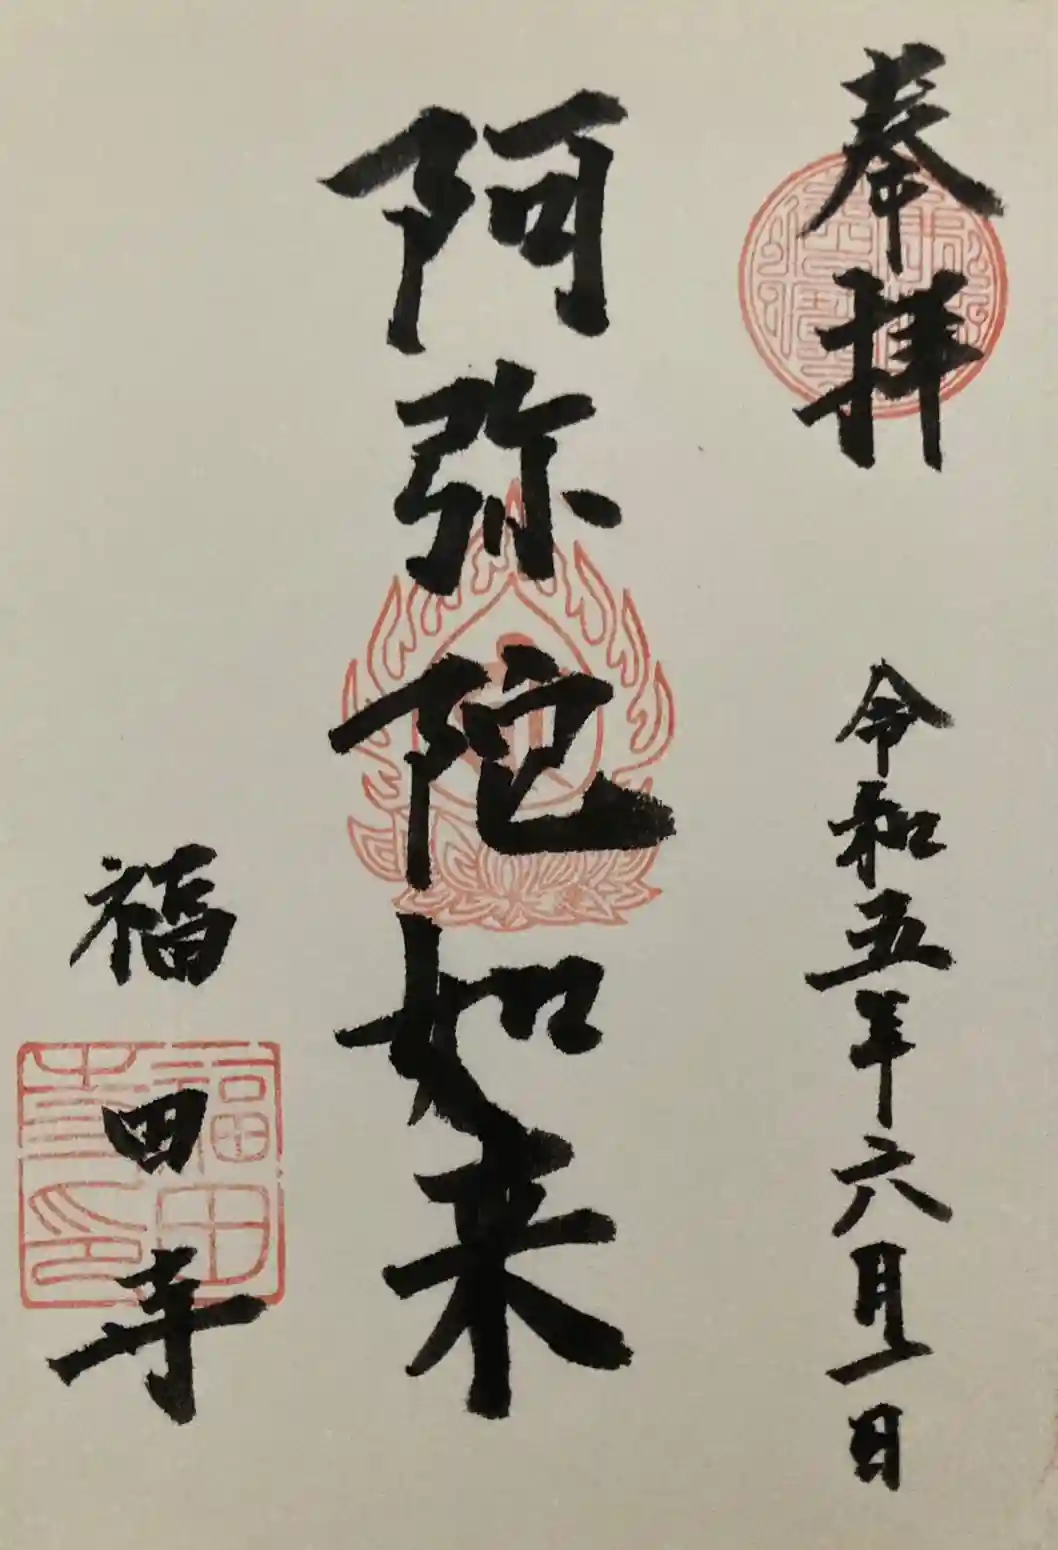 奉拝
令和五年六月一日
阿弥陀如来
福田寺
福田寺印